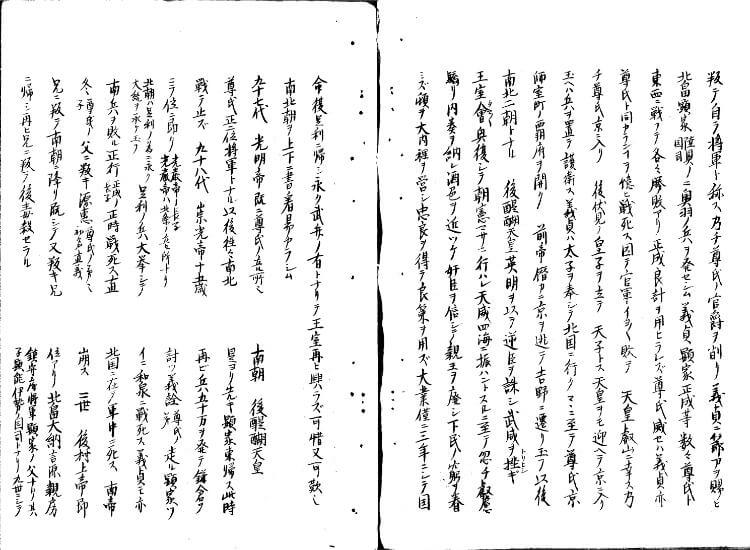 叛テ自ラ将軍ト称ス乃チ尊氏ノ官爵ヲ削リ義貞ニ節刀ヲ賜ヒ
北畠顕家陸奥ノ国司ニ奥羽ノ兵ヲ発セシム義貞顕家正成等数々尊氏ト
東西ニ戦フテ各々勝敗アリ正成良計ヲ用ヒラレズ尊氏威セハ義貞亦
尊氏ト同カランヿヲ憶ヒ戦死ス因テ官軍イヨ〳〵敗テ 天皇叡山ニ幸ス乃
チ尊氏京ニ入リ 後伏見ノ皇子ヲ立テ 天子トス天皇ヲモ迎ヘテ京ニ入リ
玉ヘハ兵ヲ置テ護衛ス義貞ハ太子ヲ奉シテ北国ニ行クマヽニ至テ尊氏京
師室町ノ覇府ヲ開ク 前帝僭カニ京ヲ逃テ吉野ニ遷リ玉フ以後
南北二朝トナル 後醍醐天皇英明ヲ以テ逆臣ヲ誅シ武威ヲ挫ギ
王室會興復シテ朝憲一サニ行ハレ天威四海ニ振ハントスルニ至テ忽チ叡慮
驕リ内妾ヲ納レ酒色ヲ近ツケ奸臣ヲ信シテ親王ヲ廃シ下民ノ窮ヲ省
ミズ頻ヲ大内裡ヲ営シ忠良ヲ得テ良策ヲ用ズ大業僅ニ三年ニシテ因
命復足利ニ帰シ永ク武弁ノ有トナリテ王室再ヒ興ラズ可惜又可歎シ
南北朝ヲ上下ニ書ス看易カラシム
九十七代 光明帝既ニ尊氏ノ立ル所也
尊氏正位将軍トナル以後往々南北
戦テ止ズ 九十八代 崇光帝十五歳
ニテ位ニ即リ光厳帝ノ長子光厳帝ハ北条ノ立ル所トリ
北朝ハ足利ノ為ニ永ク大統ヲ承ケ玉フ 足利ノ兵大挙シテ
南兵ヲ敗ル正行正成ノ長子正時戦死ス直
冬尊氏ノ子父ニ叛キ源恵尊氏ノ弟初名直義
兄ニ叛テ南朝ニ降リ既ニシテ又叛キ兄
ニ帰シ再ヒ兄ニ叛テ後毒殺セラル
南朝 後醍醐天皇
是ヨリ先キ顕家東帰ス此時
再ビ兵五十万ヲ発テ鎌倉ヲ
討ツ義詮尊氏ノ子走ル顕家ツ
イニ和泉ニ戦死ス義貞モ亦
北国ニ在リ軍中ニ死ス 南帝
崩ス 三世 後村上帝即
位アリ 北畠大納言源親房
鎮守府将軍顕家ノ父ナリ其
子顕能伊勢ノ国司トナリ九世ニシテ